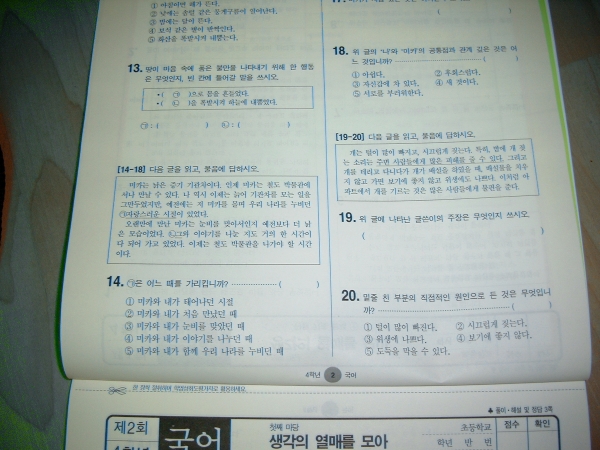 ① 아침이면 해가 뜬다.
③ 밤에는 달이 뜬다.
④ 보석 같은 별이 반짝인다.
⑤ 화산을 폭발시켜 내뿜는다.
13. 땅이 마음 속에 품은 불만을 나타내기 위해 한 행동
은 무엇인지, 빈 칸에 들어갈 말을 쓰시오.
•( ㉠ )으로 몸을 흔들었다.
•( ㉡ )을 폭발시켜 하늘에 내뿜었다.
㉠ : ( ) ㉡ : ( )
[14~18] 다음 글을 읽고, 물음에 답하시오.
미카는 낡은 증기 기관차이다. 일제 미카는 철도 박물관에
서나 만날 수 있다. 나 역시 이제는 늙어 기관차를 모는 일을
그만두었지만, 예전에는 지 미카를 몰며 우리 나라를 누비던
㉠자랑스러운 시절이 있었다.
오랜만에 만난 미카는 눈비를 맞아서인지 예전보다 더 낡
은 모습이었다. ㉡그와 이야기를 나눈 지도 거의 한 시간이
다 되어 가고 있었다. 이제는 철도 박물관을 나가야 할 시간
이다.
14. ㉠은 어느 때를 가리킵니까? ( )
① 미카와 내가 태어나던 시절
② 미카와 내가 처음 만났던 때
③ 미카와 내가 눈비를 맞았던 때
④ 미카와 내가 이야기를 나누던 때
⑤ 미카와 내가 함께 우리 나라를 누비던 때
18. 위 글의 '나'와 '미카'의 공통점과 관계 깊은 것은 어
느 것입니까? ( )
① 아쉽다. ② 후회스럽다.
③ 자신감에 차 있다. ④ 샘 것이다.
⑤ 서로를 부러워한다.
[19~20] 다음 글을 읽고, 물음에 답하시오.
개는 털이 많이 빠지고, 시끄럽게 짖는다. 특히, 밤에 개 짖
는 소리는 주변 사람들에게 많은 피해를 줄 수 있다. 그리고
개를 데리고 나다니다가 개가 배설을 하였을 때, 배설물을 치우
지 않고 가면 보기에 좋지 않고 위생에도 나쁘다. 이처럼 아
파트에서 개를 기르는 것은 많은 사람들에게 불편을 준다.
19. 위 글에 나타난 글쓴이의 주장은 무엇인지 쓰시오.
( )
20. 밑줄 친 부분의 직접적인 원인으로 든 것은 무엇입니
까? ( )
① 털이 많이 빠진다. ② 시끄럽게 짖는다.
③ 위생에 나쁘다. ④ 보기에 좋지 않다.
⑤ 도둑을 막을 수 있다.
4학년 2 국어
♣ 풀이·해설 및 정답 3쪽
제2회
국어
첫째 마당
생각의 열매를 모아
초등학교
학년 반 번
점수 확인